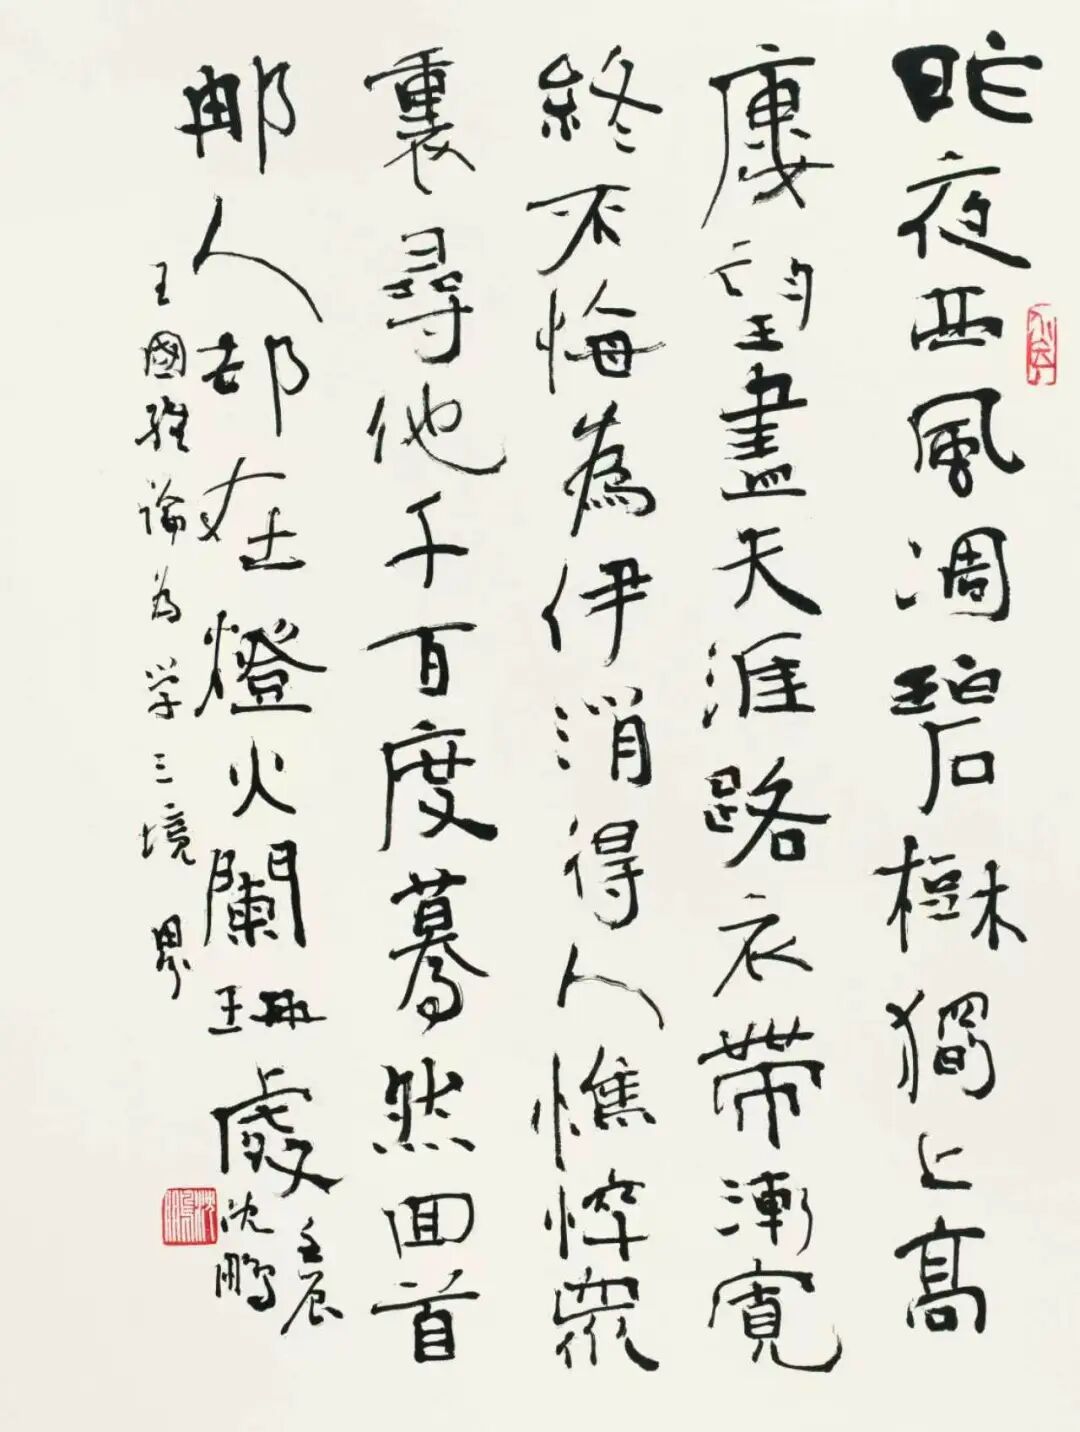 昨夜西風凋碧樹獨上高
廔望盡天涯路衣帶漸寬
終不悔為伊消得人憔悴眾
裏尋他千百度驀然回首
那人却在燈火闌珊處
王國維論為学三境界
壬辰
沈鵬